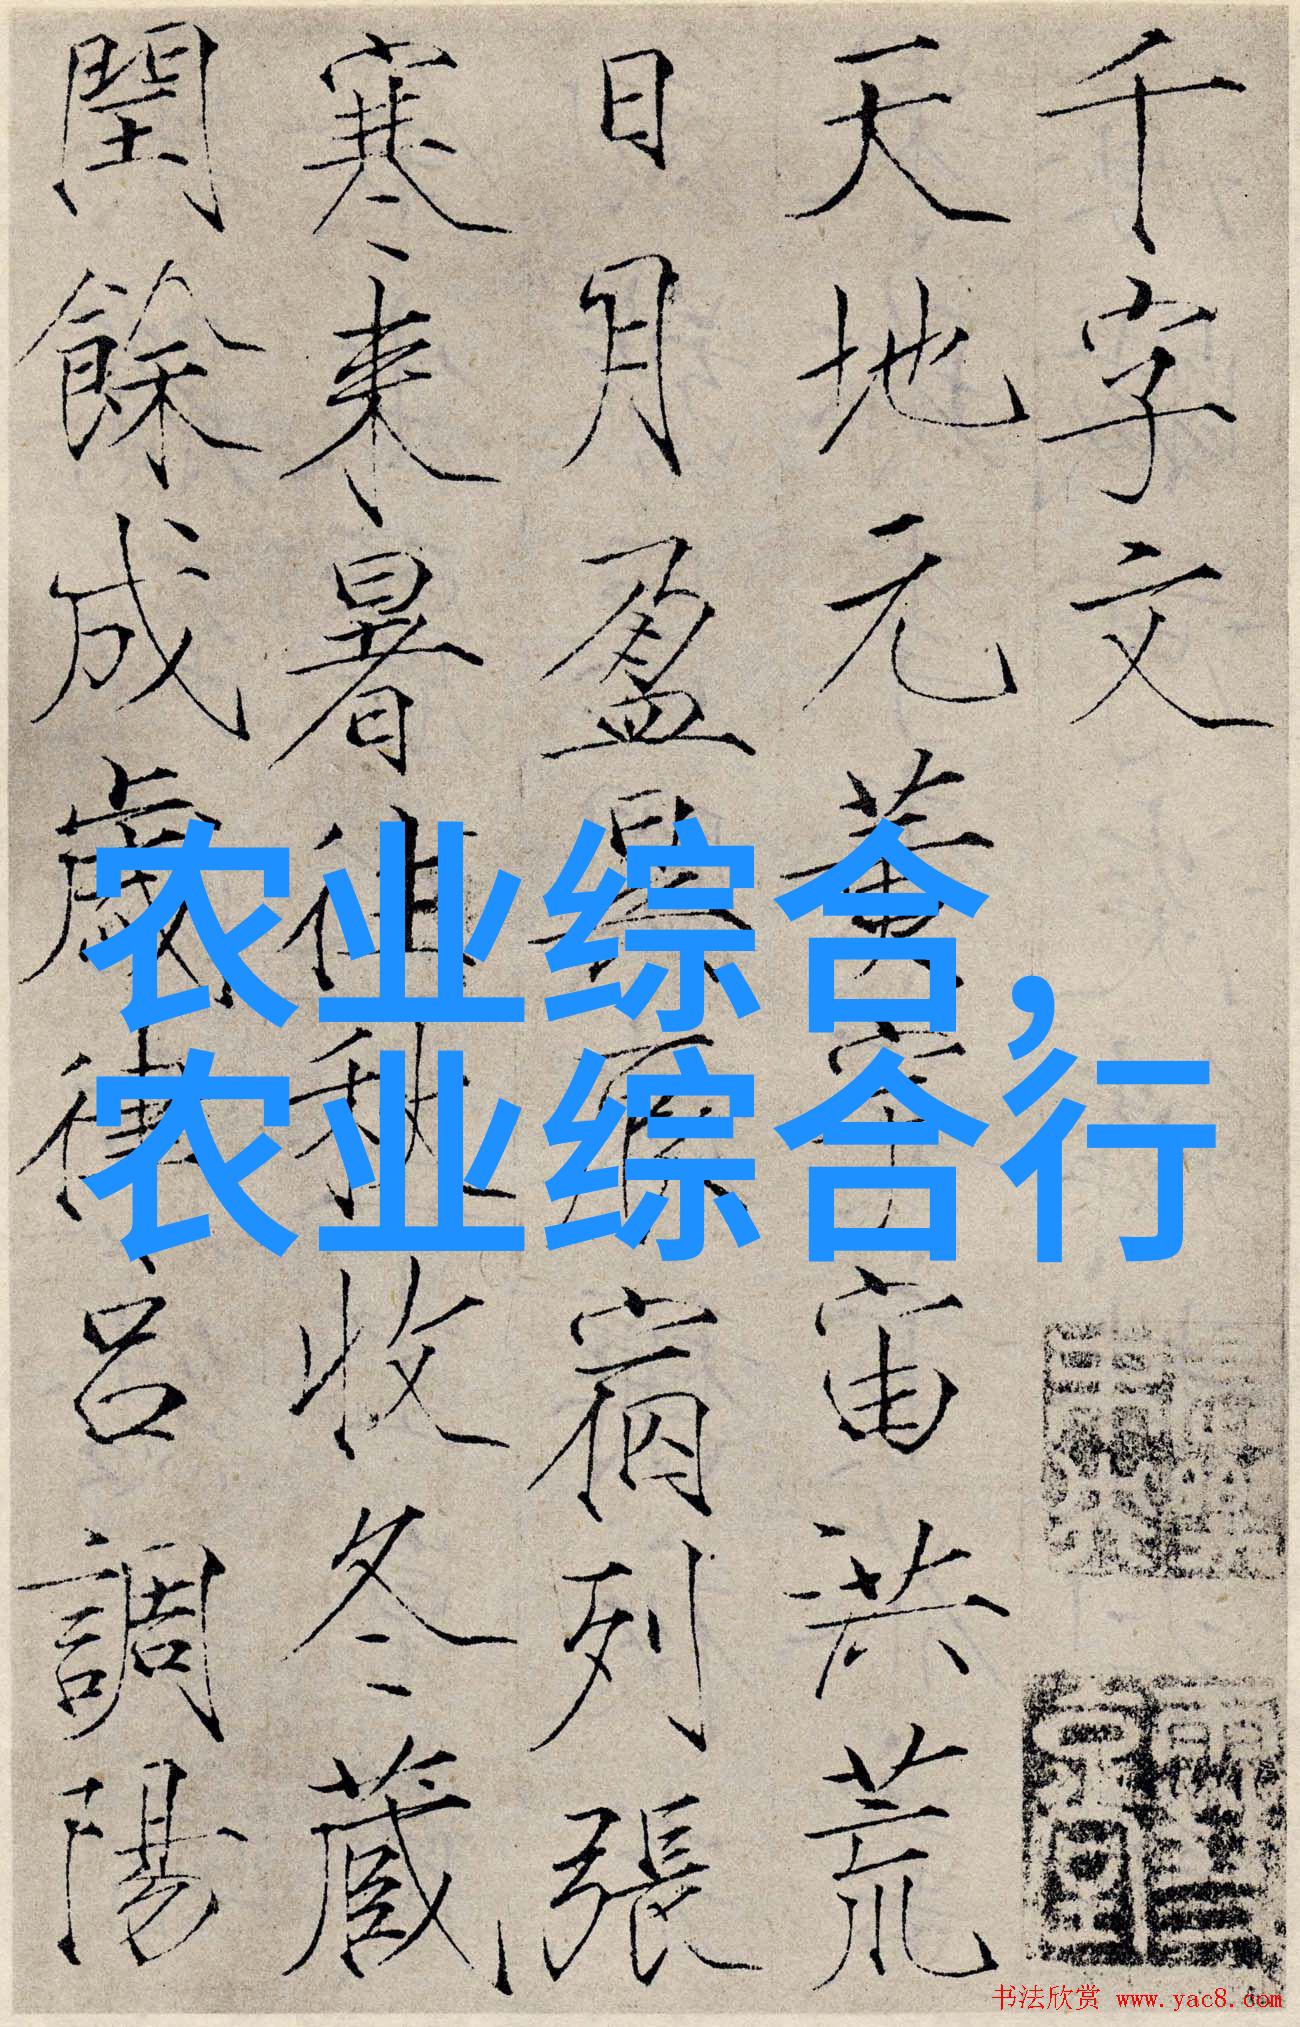 千字文
天地元黃宇宙洪荒
日月盈昃辰宿列張
寒来暑徂秋收冬蔵
閏餘成歲律吕調陽
农业综合，
农业综合行
书法欣赏 www.yac8.com